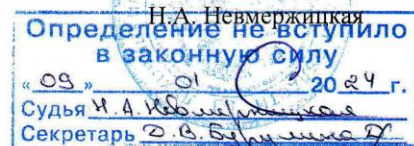 Н.А. Невмержицкая
Определение не вступило
в законную силу
« 09 » 01 2024 г.
Судья Н.А. Невмержицкая
Секретарь Э.В.